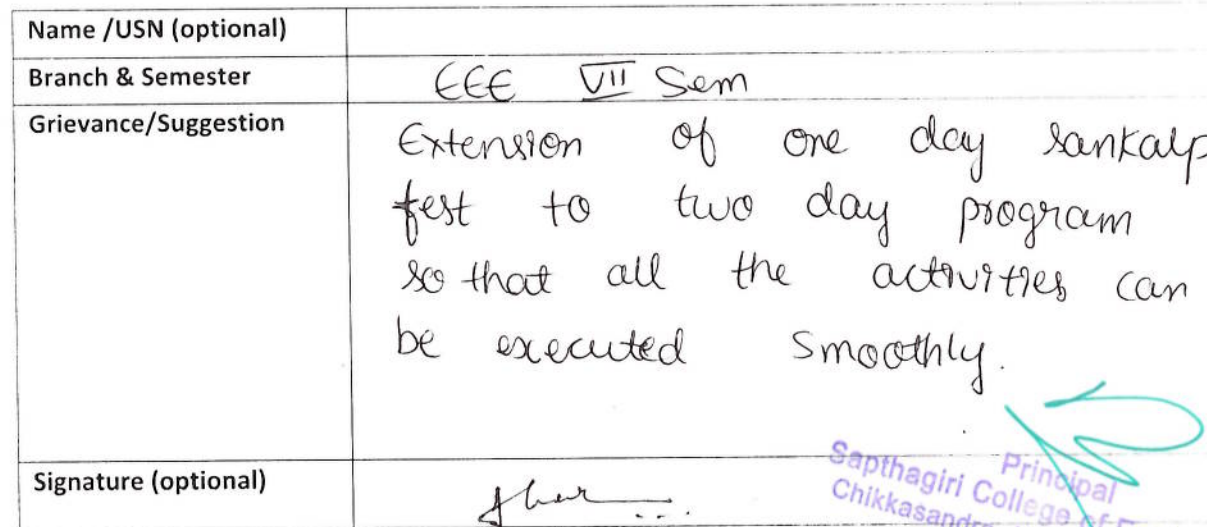 Name /USN (optional)
Branch & Semester
EEE VII Sem
Grievance/Suggestion
Extension of one day sankalp
fest to two day program
so that all the activities can
be executed smoothly.
Signature (optional)
Principal
Sapthagiri College of